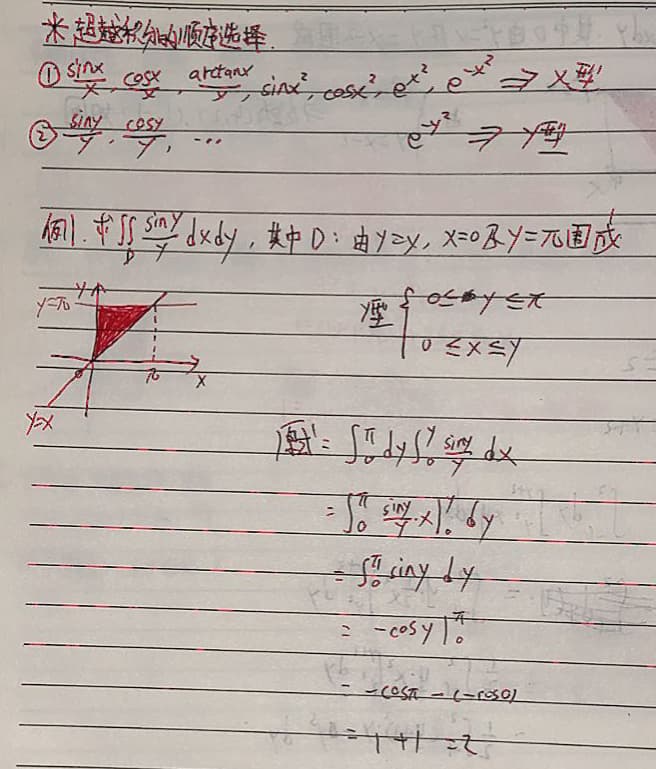 ※ 超越积分的顺序选择.
① sinx/x, cosx/x, arctanx/x, sinx², cosx², e^x², e^-x² ⇒ X型
② siny/y, cosy/y, ⋯ e^-y² ⇒ Y型
例1. 求∬_D siny/y dxdy, 其中D: 由y=x, x=0及y=π围成
y
y=π
0
π
x
y=x
Y型 { 0≤y≤π
0≤x≤y
原式 = ∫₀^π dy ∫₀^y siny/y dx
= ∫₀^π siny/y · x |₀^y dy
= ∫₀^π siny dy
= -cosy |₀^π
= -cosπ - (-cos0)
= 1+1 = 2